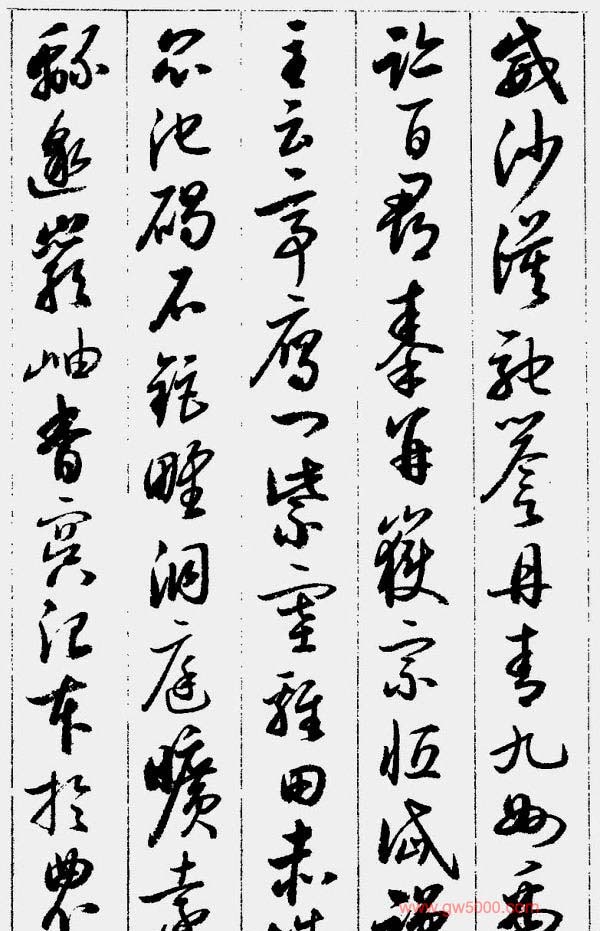 威沙漠馳譽丹青九州禹
跡百郡秦并嶽宗恒岱禪
主云亭鴈門紫塞雞田赤城
昆池碣石鉅野洞庭曠遠
緜邈巖岫杳冥治本於農
www.gw5000.com